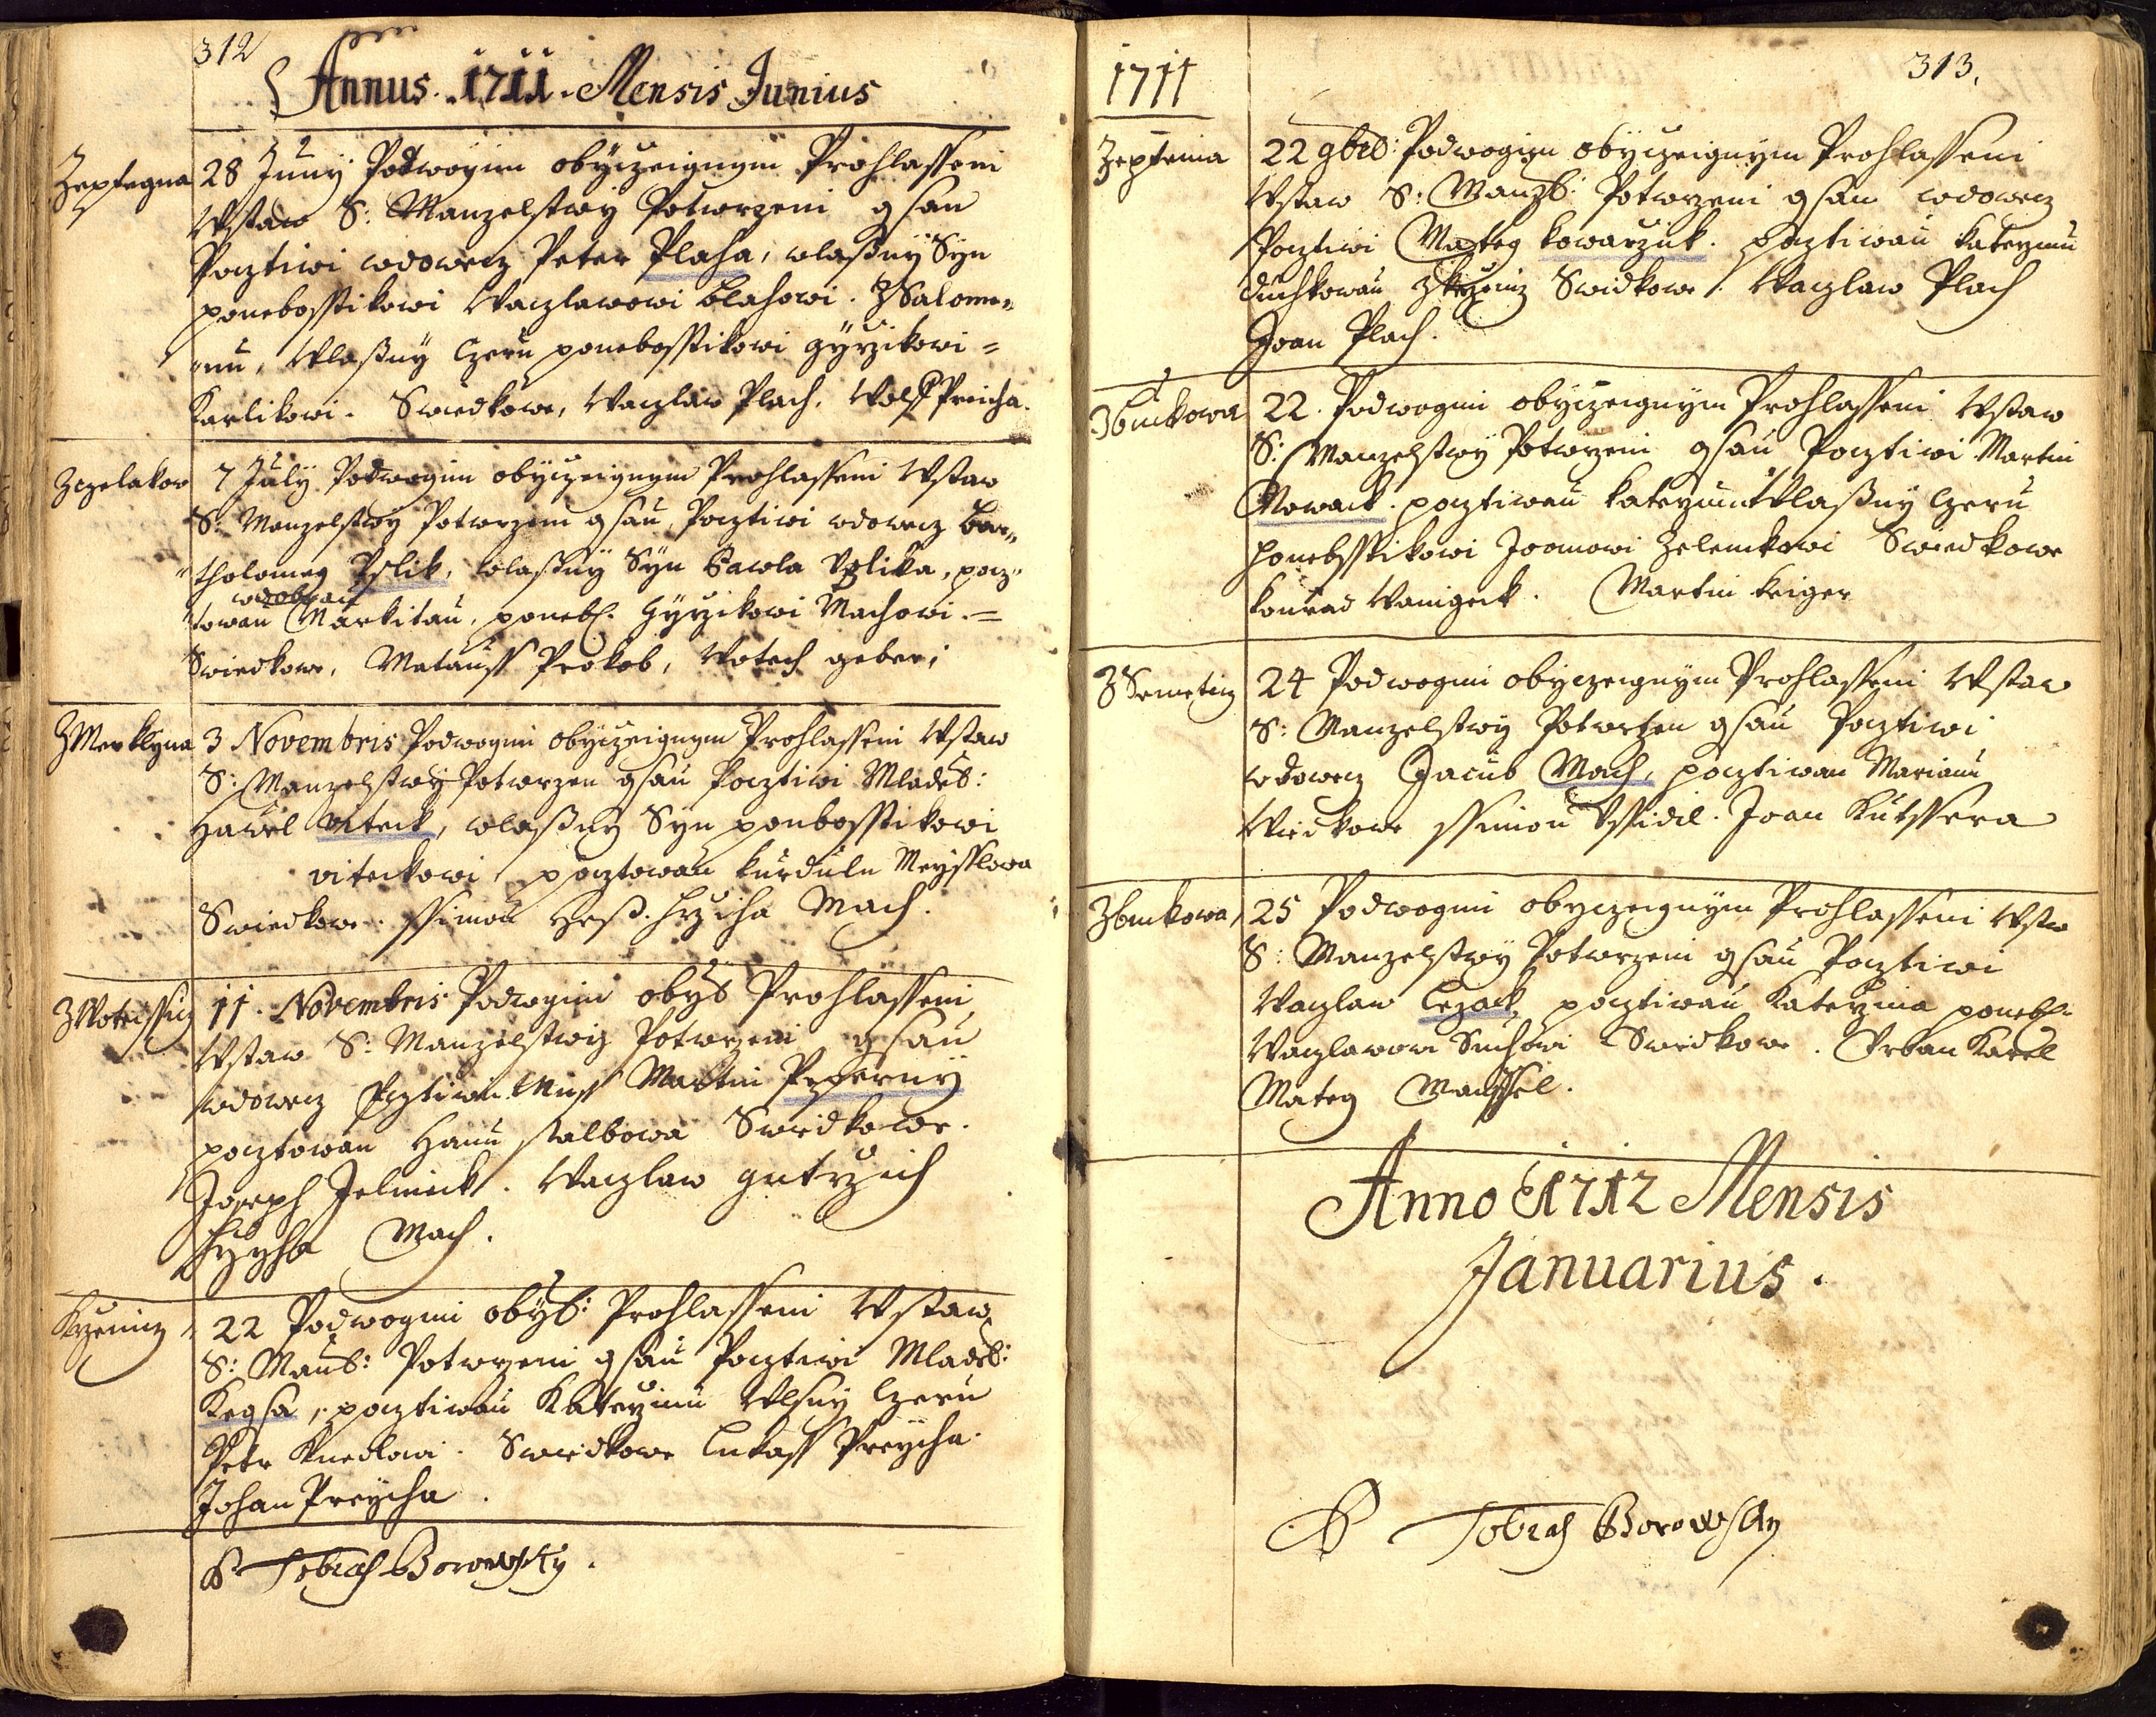 312
Annus. 1711. Mensis Junius
Zeptegna
28 Juny Podwoynim obyczeignym Prohlasseni
Wstaw S: Manzelstwy Potwrzeni gsau
Pocztiwi wdowecz Peter Plaha, wlaßny Syn
ponebosstikowi Waczlawowi Blahowi. Z Salome„
„nu, Wlaßny Czeru ponebosstikowi Gyrzikowi =
Karlikowi. Swiedkowe, Waczlaw Plach, Wolff Preicha.
Zczelakow
7 July Podwognim obyczeignym Prohlasseni Wstaw
S: Manzelstwy Potwrzeni gsau, Pocztiwi wdowecz Bar„
„tholomeg Pslik, wlaßny Syn Pawla Pslika, pocz„
wdowau
„towau Markitau, ponebß. Gyrzikowi Machowi. =
Swiedkowe, Matauss Prokob, Wotech geber;
Z Merklyna
3 Novembris Podwogmi obyczeignym Prohlasseni Wstaw
S: Manzelstwy Potwrzen gsau Pocztiwi Mladeb:
Hawel viteck, wlaßny Syn ponbosstikowi
viteckowi, pocztowau kurdulu Meysslowa
Swiedkowe. ssimon Heß. hrziha Mach.
Z Wotessicz
11. Novembris Podwogmi obyb Prohlasseni
Wstaw S: Manzelstwy Potwrzeni gsau
wdowecz Pocztiwi Muss Martin Peperny
pocztowau Hanu stalbowa Swiedkowe.
Joseph Jelineck. Waczlaw getrzich
hrzyha Mach.
Krzenicz
22 Podwogmi obyb: Prohlasseni Wstaw
S: Manb: Potwrzeni gsau Pocztiwi Mladeb:
Kegsa, pocztiwau Katerzinu Wlsny Czeru
Petr Knedlowi. Swiedkowe Lukass Preycha.
Johan Preycha.
P Tobias Borowsky.
1711
313.
Zeptenia
22 9bris: Podwogim obyczeignym Prohlasseni
Wstaw S: Manzb: Potwrzeni gsau wdowecz
Pocztiwi Mateg kowarzik. pocztiwau katerzinu
duchkowau Zkrzenicz Swidkowe. Waczlaw Plach
Joan Plach.
Zbukowa
22. Podwogmi obyczeignym Prohlasseni Wstaw
S: Manzelstwy Potwrzeni gsau Pocztiwi Martin
Nowack. pocztiwau katerzinu Wlaßny Czeru
ponebsstikowi Joanowi Zelenkowi Swiedkowe
konrad Wanigeck. Martin krieger
Z Semeticz
24 Podwogmi obyczeignym Prohlasseni Wstaw
S: Manzelstwy Potwrzen gsau Pocztiwi
wdowecz Jacub Mach, pocztiwau Marianu
Wiedkowe ssimon Joan Kutssera
Zbukowa,
25 Podwogmi obyczeignym Prohlasseni Wstw
S: Manzelstwy Potwrzeni gsau Pocztiwi
Waczlaw Cezack, pocztiwau Katerzina ponebß
Waczlawowi Suchowi Swidkowe. Urban Karel
Mateg Maussel.
Anno 1712 Mensis
Januarius.
P Tobias Borowsky